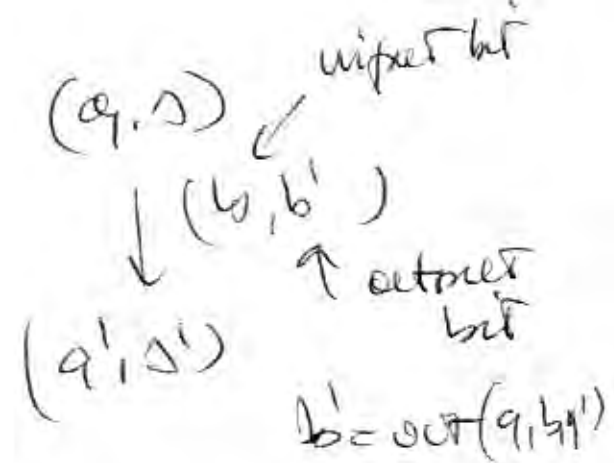 input bit
(q, s)
(b, b')
output
bit
(q', s')
b' = out(q, b, q')